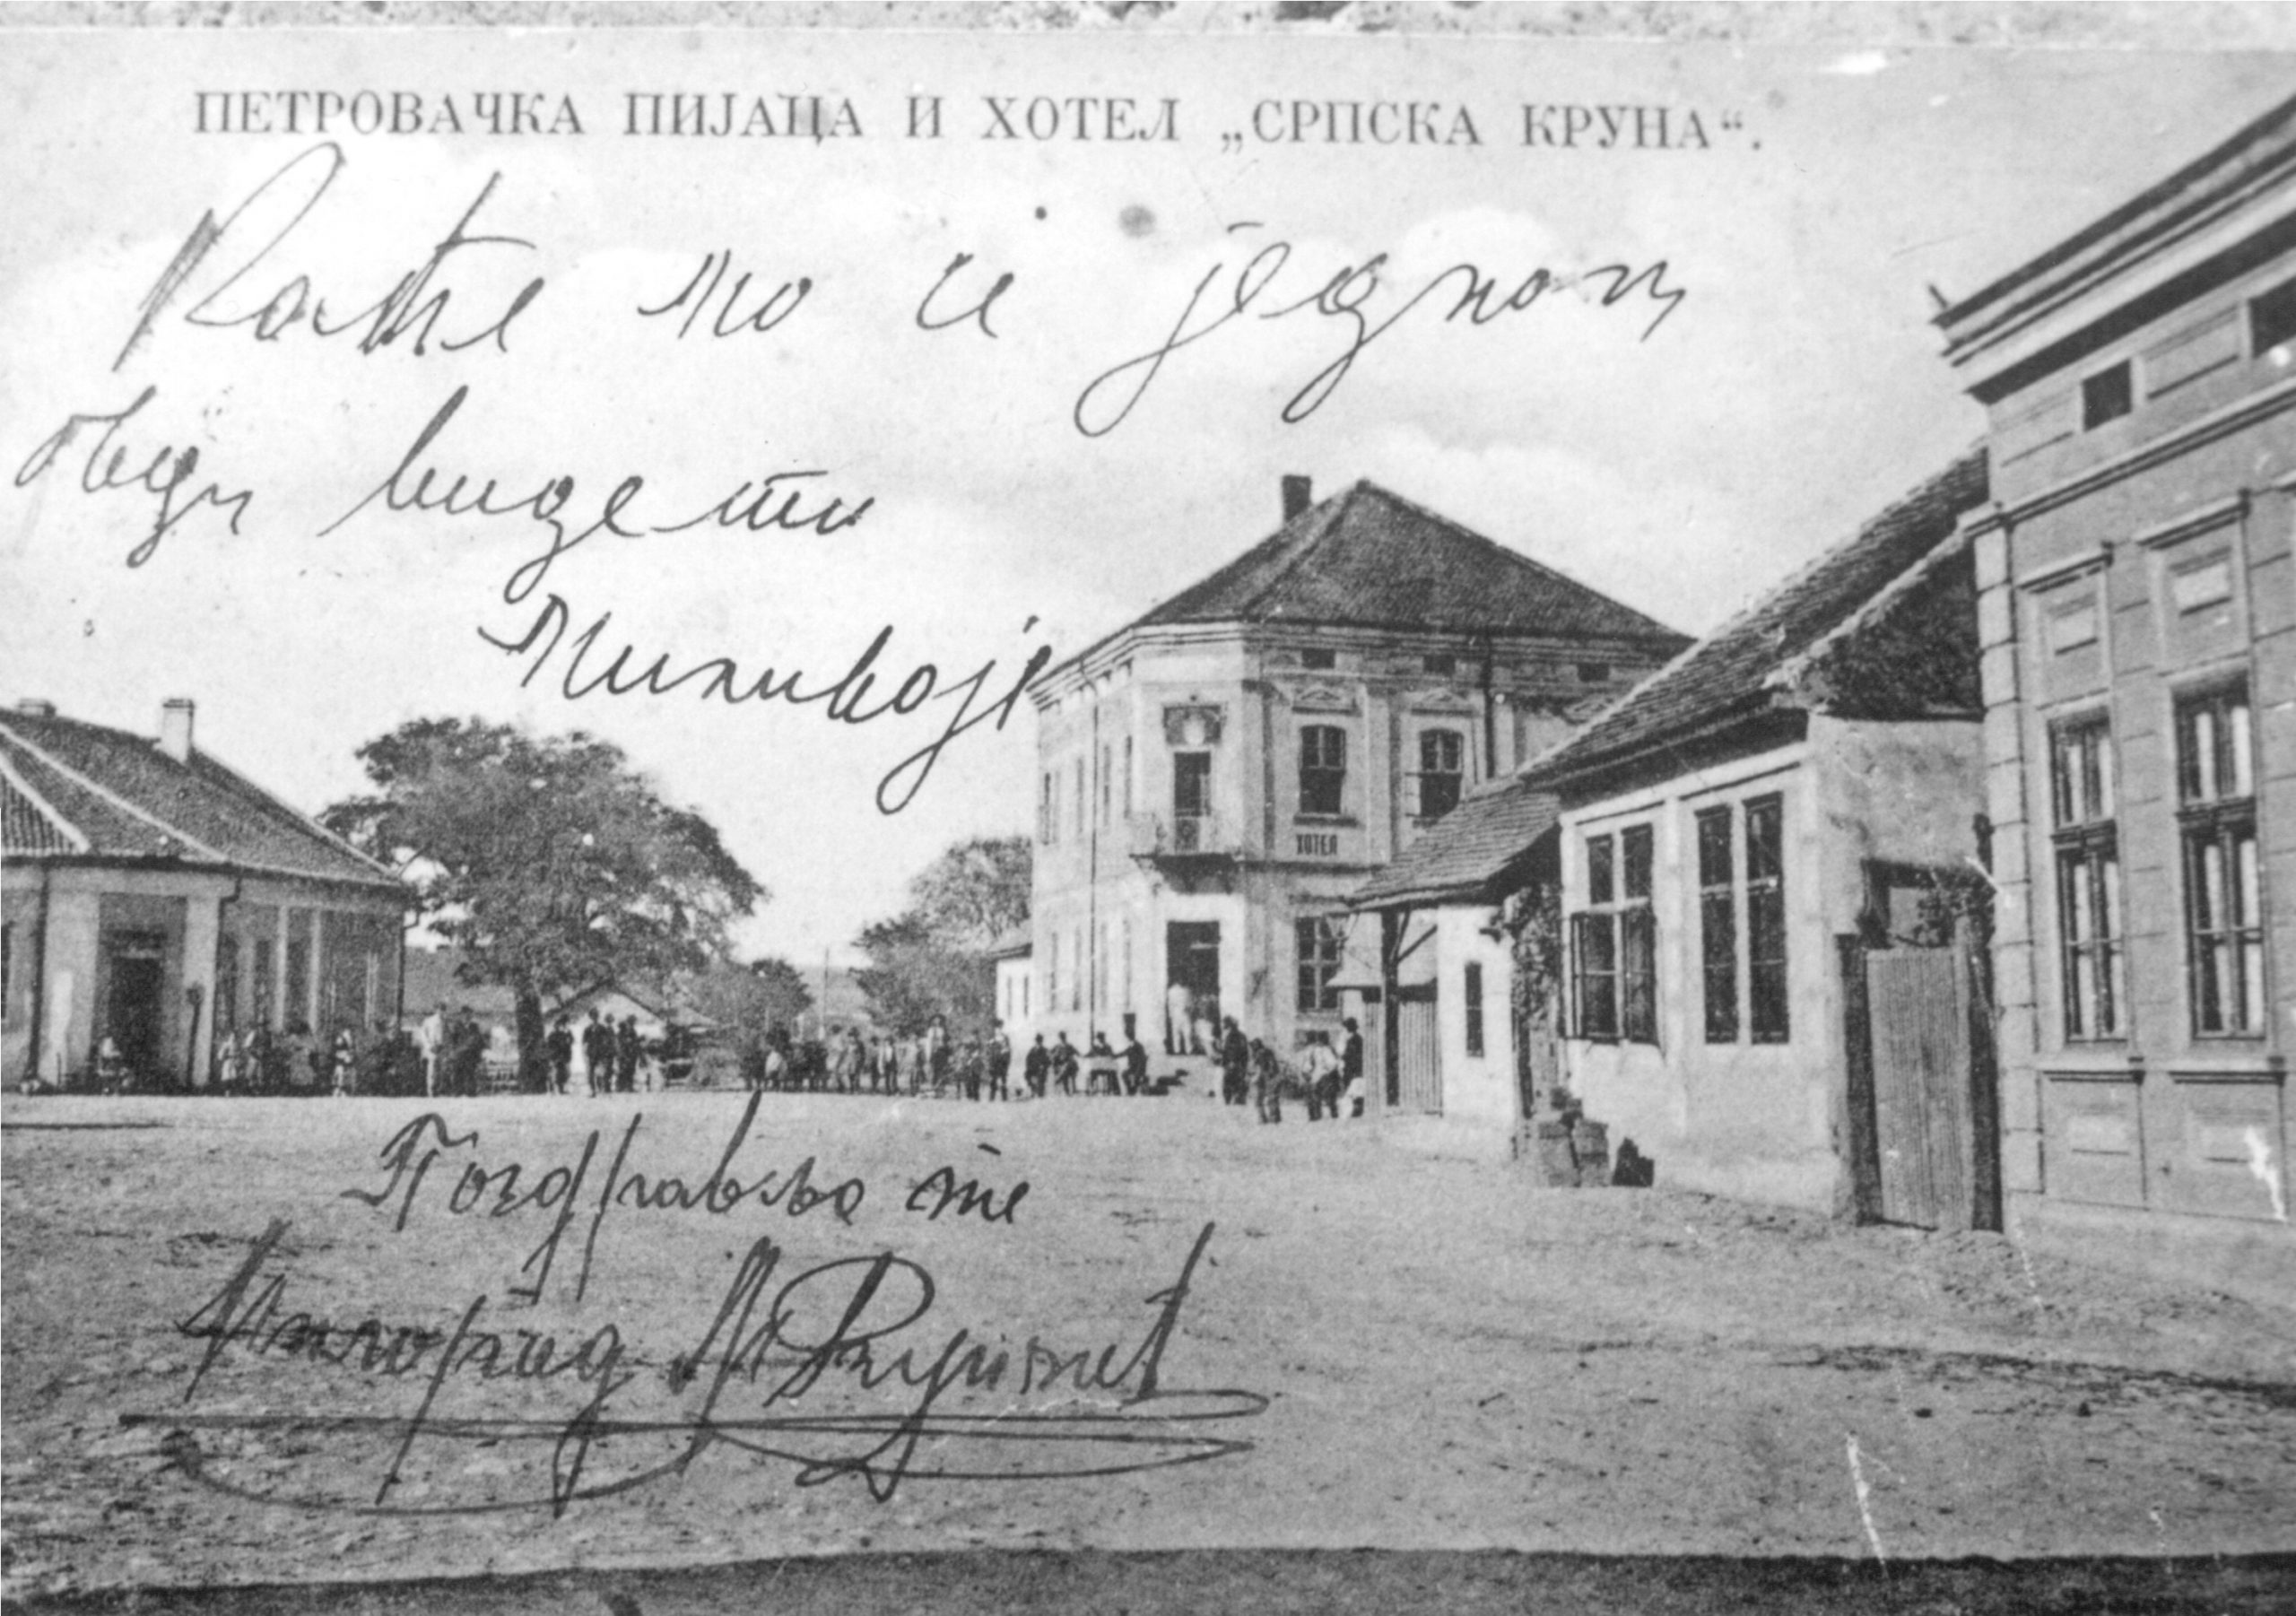 ПЕТРОВАЧКА ПИЈАЦА И ХОТЕЛ „СРПСКА КРУНА“.
ћемо се једном
овди видети
Миливоје
ХОТЕЛ
Поздравља те
Милорад М